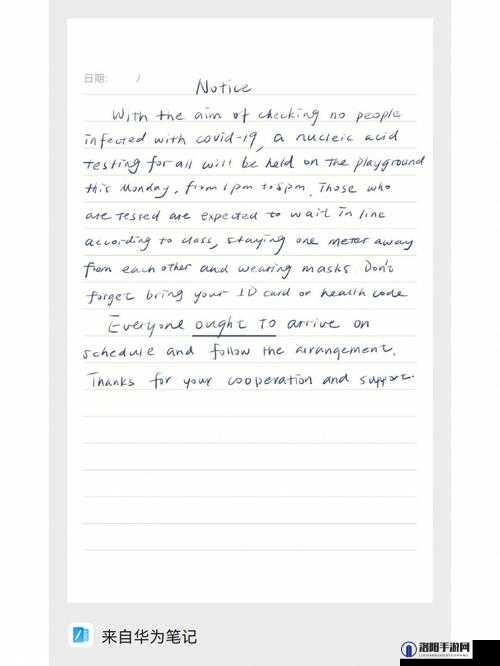 日期: /
Notice
With the aim of checking no people
infected with covid-19, a nucleic acid
testing for all will be held on the playground
this Monday, from 1pm to 5pm. Those who
are tested are expected to wait in line
according to class, staying one meter away
from each other and wearing masks Don't
forget bring your ID card or health code
Everyone ought to arrive on
schedule and follow the arrangement.
Thanks for your cooperation and support.
来自华为笔记
洛阳手游网